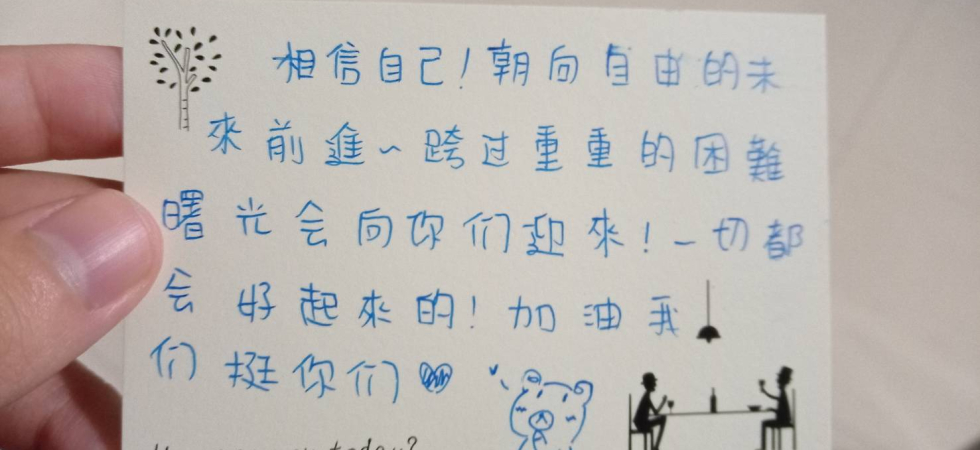 相信自己!朝向自由的未
來前進~跨过重重的困難
曙光会向你们迎來!一切都
会好起來的!加油我
们挺你们
today?